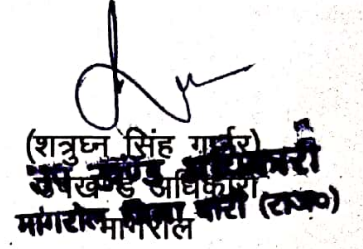 (शत्रुघ्न सिंह गुर्जर)
उप खण्ड अधिकारी
उपखण्ड अधिकारी
मांगरोल जिला बारां (राज०)
मांगरोल